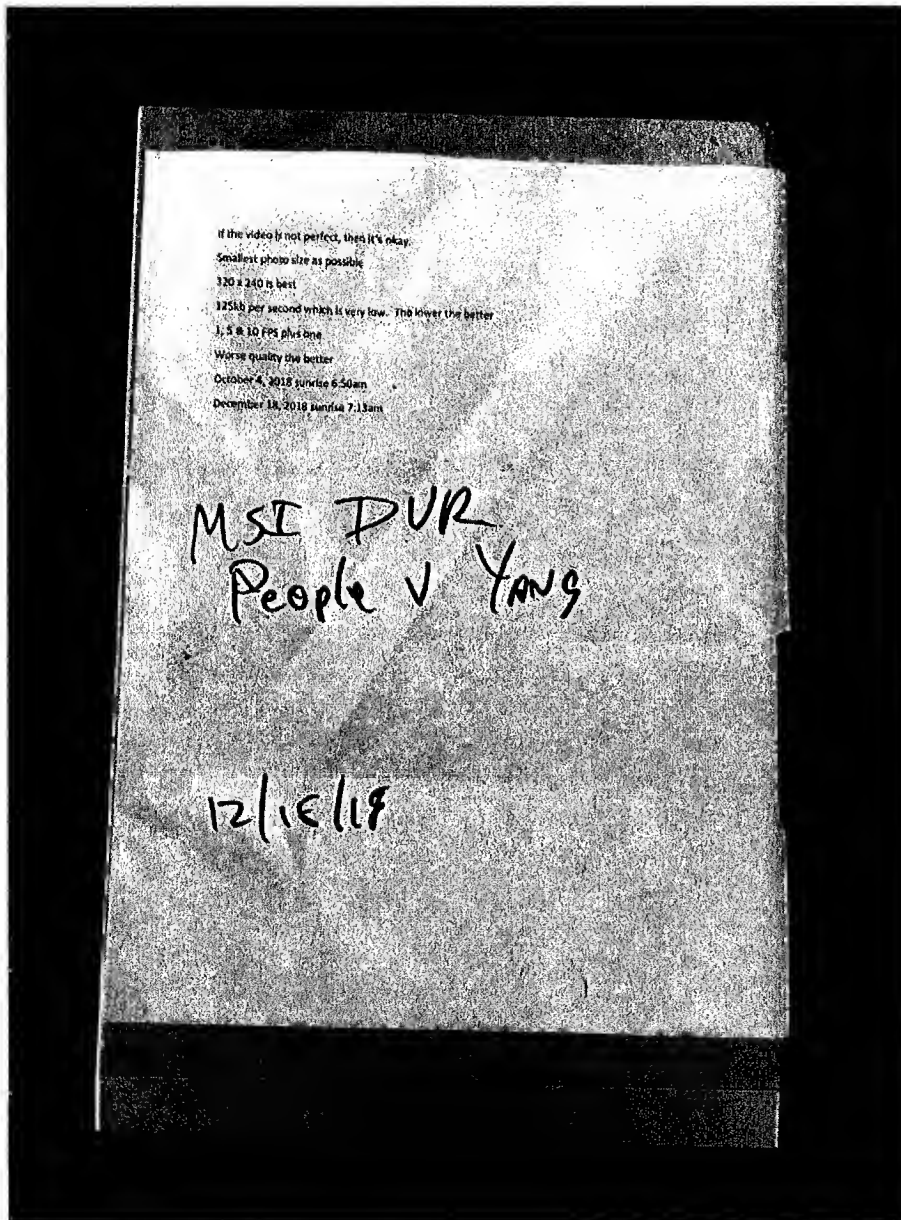 If the video is not perfect, then it's okay.
Smallest photo size as possible
320 x 240 is best
125kb per second which is very low. The lower the better
1, 5 & 10 FPS plus one
Worse quality the better
October 4, 2018 sunrise 6:50am
December 18, 2018 sunrise 7:13am
MSI DVR
People V YANG